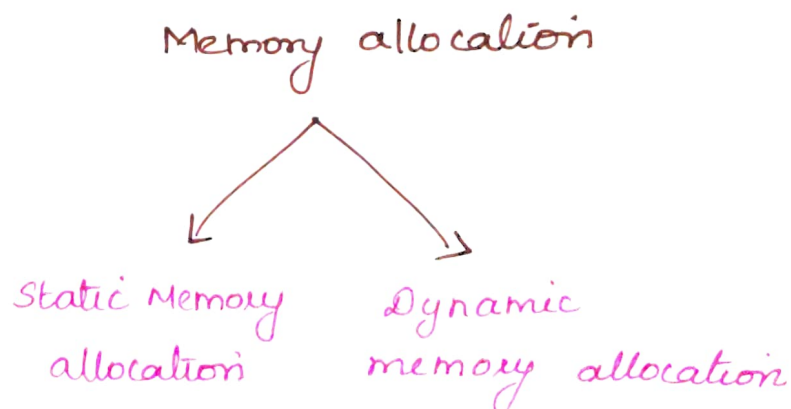 Memory allocation
Static Memory
allocation
Dynamic
memory allocation